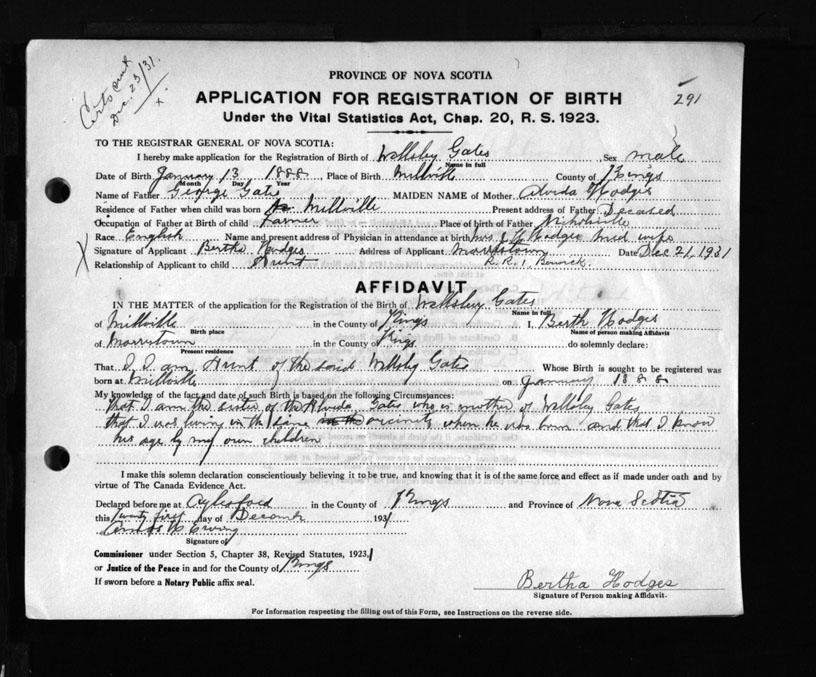 Certs sent
Dec. 23/31.
x.
PROVINCE OF NOVA SCOTIA
291
APPLICATION FOR REGISTRATION OF BIRTH
Under the Vital Statistics Act, Chap. 20, R. S. 1923.
TO THE REGISTRAR GENERAL OF NOVA SCOTIA:
I hereby make application for the Registration of Birth of Wellsley Gates Sex male
Name in full
Date of Birth January 13 1888 Place of Birth Millville County of Kings
Month Day Year
Name of Father George Gates MAIDEN NAME of Mother Alveda Hodges
Residence of Father when child was born Millville Present address of Father Deceased
Occupation of Father at Birth of child Farmer Place of birth of Father
Race English Name and present address of Physician in attendance at birth Mrs Hodges mid wife
X Signature of Applicant Bertha Hodges Address of Applicant Morristown Date Dec 21, 1931
Relationship of Applicant to child Aunt R.R. 1, Berwick.
AFFIDAVIT
IN THE MATTER of the application for the Registration of the Birth of Wellsley Gates
Name in full
of Millville in the County of Kings I, Berth Hodges
Birth place Name of person making Affidavit
of Morristown in the County of Kings do solemnly declare:
Present residence
That I I am Aunt of the said Wellsley Gates Whose Birth is sought to be registered was
born at Millville on January 1888
My knowledge of the fact and date of such Birth is based on the following Circumstances:
that I am the sister of the Alveda Gates who is mother of Wellsley Gates
that I was living in the same vicinity when he was born and that I know
his age by my own children
I make this solemn declaration conscientiously believing it to be true, and knowing that it is of the same force and effect as if made under oath and by
virtue of The Canada Evidence Act.
Declared before me at Aylesford in the County of Kings and Province of Nova Scotia
this Twenty first day of December 1931
Signature of
Commissioner under Section 5, Chapter 38, Revised Statutes, 1923,
or Justice of the Peace in and for the County of Kings
If sworn before a Notary Public affix seal.
Bertha Hodges
Signature of Person making Affidavit.
For Information respecting the filling out of this Form, see Instructions on the reverse side.